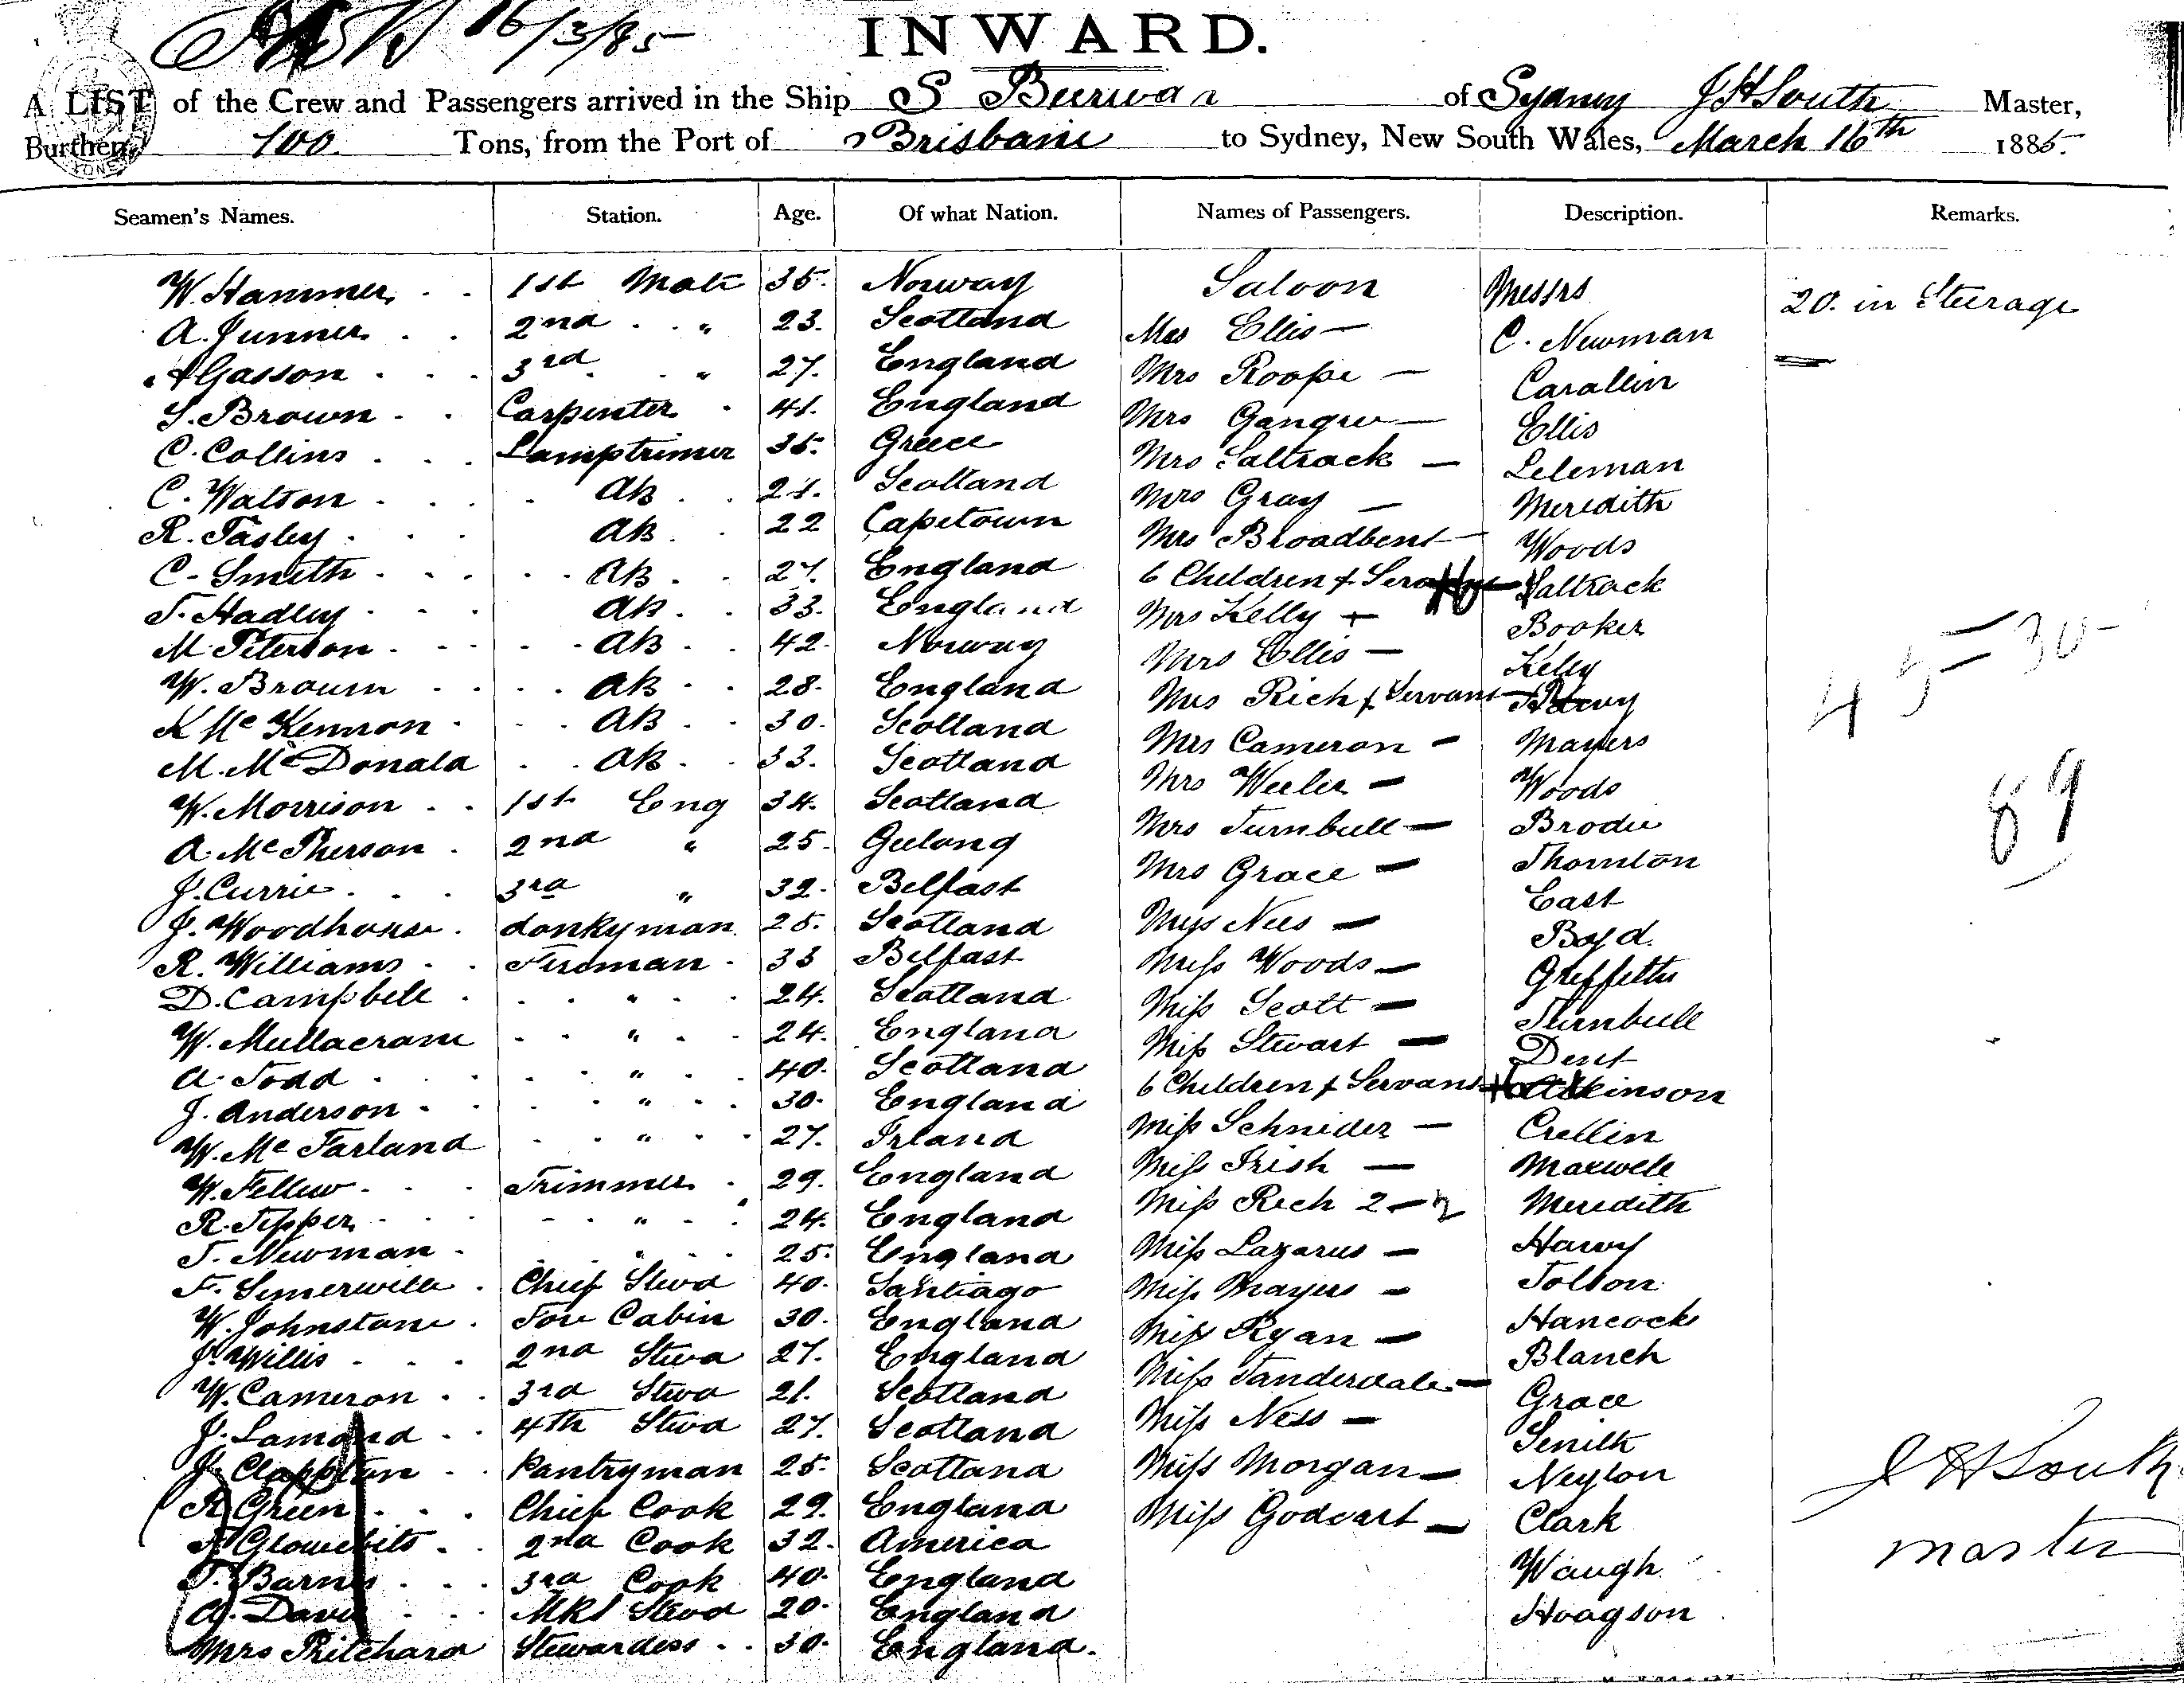 16/3/85
INWARD.
A LIST of the Crew and Passengers arrived in the Ship S Burwar of Sydney J H South Master,
Burthen 700 Tons, from the Port of Brisbane to Sydney, New South Wales, March 16th 1885.
Seamen's Names. Station. Age. Of what Nation. Names of Passengers. Description. Remarks.
W. Hammer 1st Mate 35. Norway Saloon Messrs 20. in Steerage
A. Junner 2nd " 23. Scotland Mrs Ellis — C. Newman
A Gasson 3rd " 27. England Mrs Roope — Carallin
S. Brown Carpenter 41. England Mrs — Ellis
C. Collins Lamptrimer 35. Greece Mrs Saltrack — Leleman
C. Watson AB 21. Scotland Mrs Gray — Meredith
R. Tasley AB 22 Capetown Mrs Broadbent — Woods
C. Smith AB 27. England 6 Children & Saltrack
T. Hadley AB 33. England Mrs Kelly — Booker
M. Peterson AB 42. Norway Mrs Ellis — Kelly
W. Brown AB 28. England Mrs Rich & Servant
K McKennon AB 30. Scotland Mrs Cameron — Mayers
M. McDonald AB 33. Scotland Mrs Weeler — Woods
W. Morrison 1st Eng 34. Scotland Mrs Turnbull — Brodie
A. McPherson 2nd " 25. Geelong Mrs Grace — Thornton
J. Currie 3rd " 32. Belfast Miss Nees — East
J. Woodhouse donkyman 25. Scotland Miss Woods — Boyd.
R. Williams Fireman 33 Belfast Miss Scott — Griffiths
D. Campbell " 24. Scotland Miss Stewart — Turnbull
W. Mullacrane " 24. England 6 Children & Servant Dent
A. Todd " 40. Scotland Miss Schnider — Atkinson
J. Anderson " 30. England Miss Irish — Crellin
W. McFarland " 27. Irland Miss Rich 2 — 2 Maxwell
W. Fellew Trimmer 29. England Miss Lazarus — Meredith
R. Tepper " 24. England Miss Mayers — Harvy
T. Newman " 25. England Miss Ryan — Tolson
F. Simerwille Chief Stwd 40. Santiago Miss Tanderdale — Hancock
W. Johnstone Fore Cabin 30. England Miss Ness — Blanch
J. Willis 2nd Stwd 27. England Miss Morgan — Grace
W. Cameron 3rd Stwd 21. Scotland Miss Godeart — Senith
J. Lamond 4th Stwd 27. Scotland Neylon
J. Clappton Pantryman 25. Scotland Clark
R Green Chief Cook 29. England Waugh
Glowebits 2nd Cook 32. America Hodgson
T. Barnes 3rd Cook 40. England
A. Davis Stwd 20. England
Mrs Pritchard Stewardess 30. England.
45 = 30
89
J H South
master